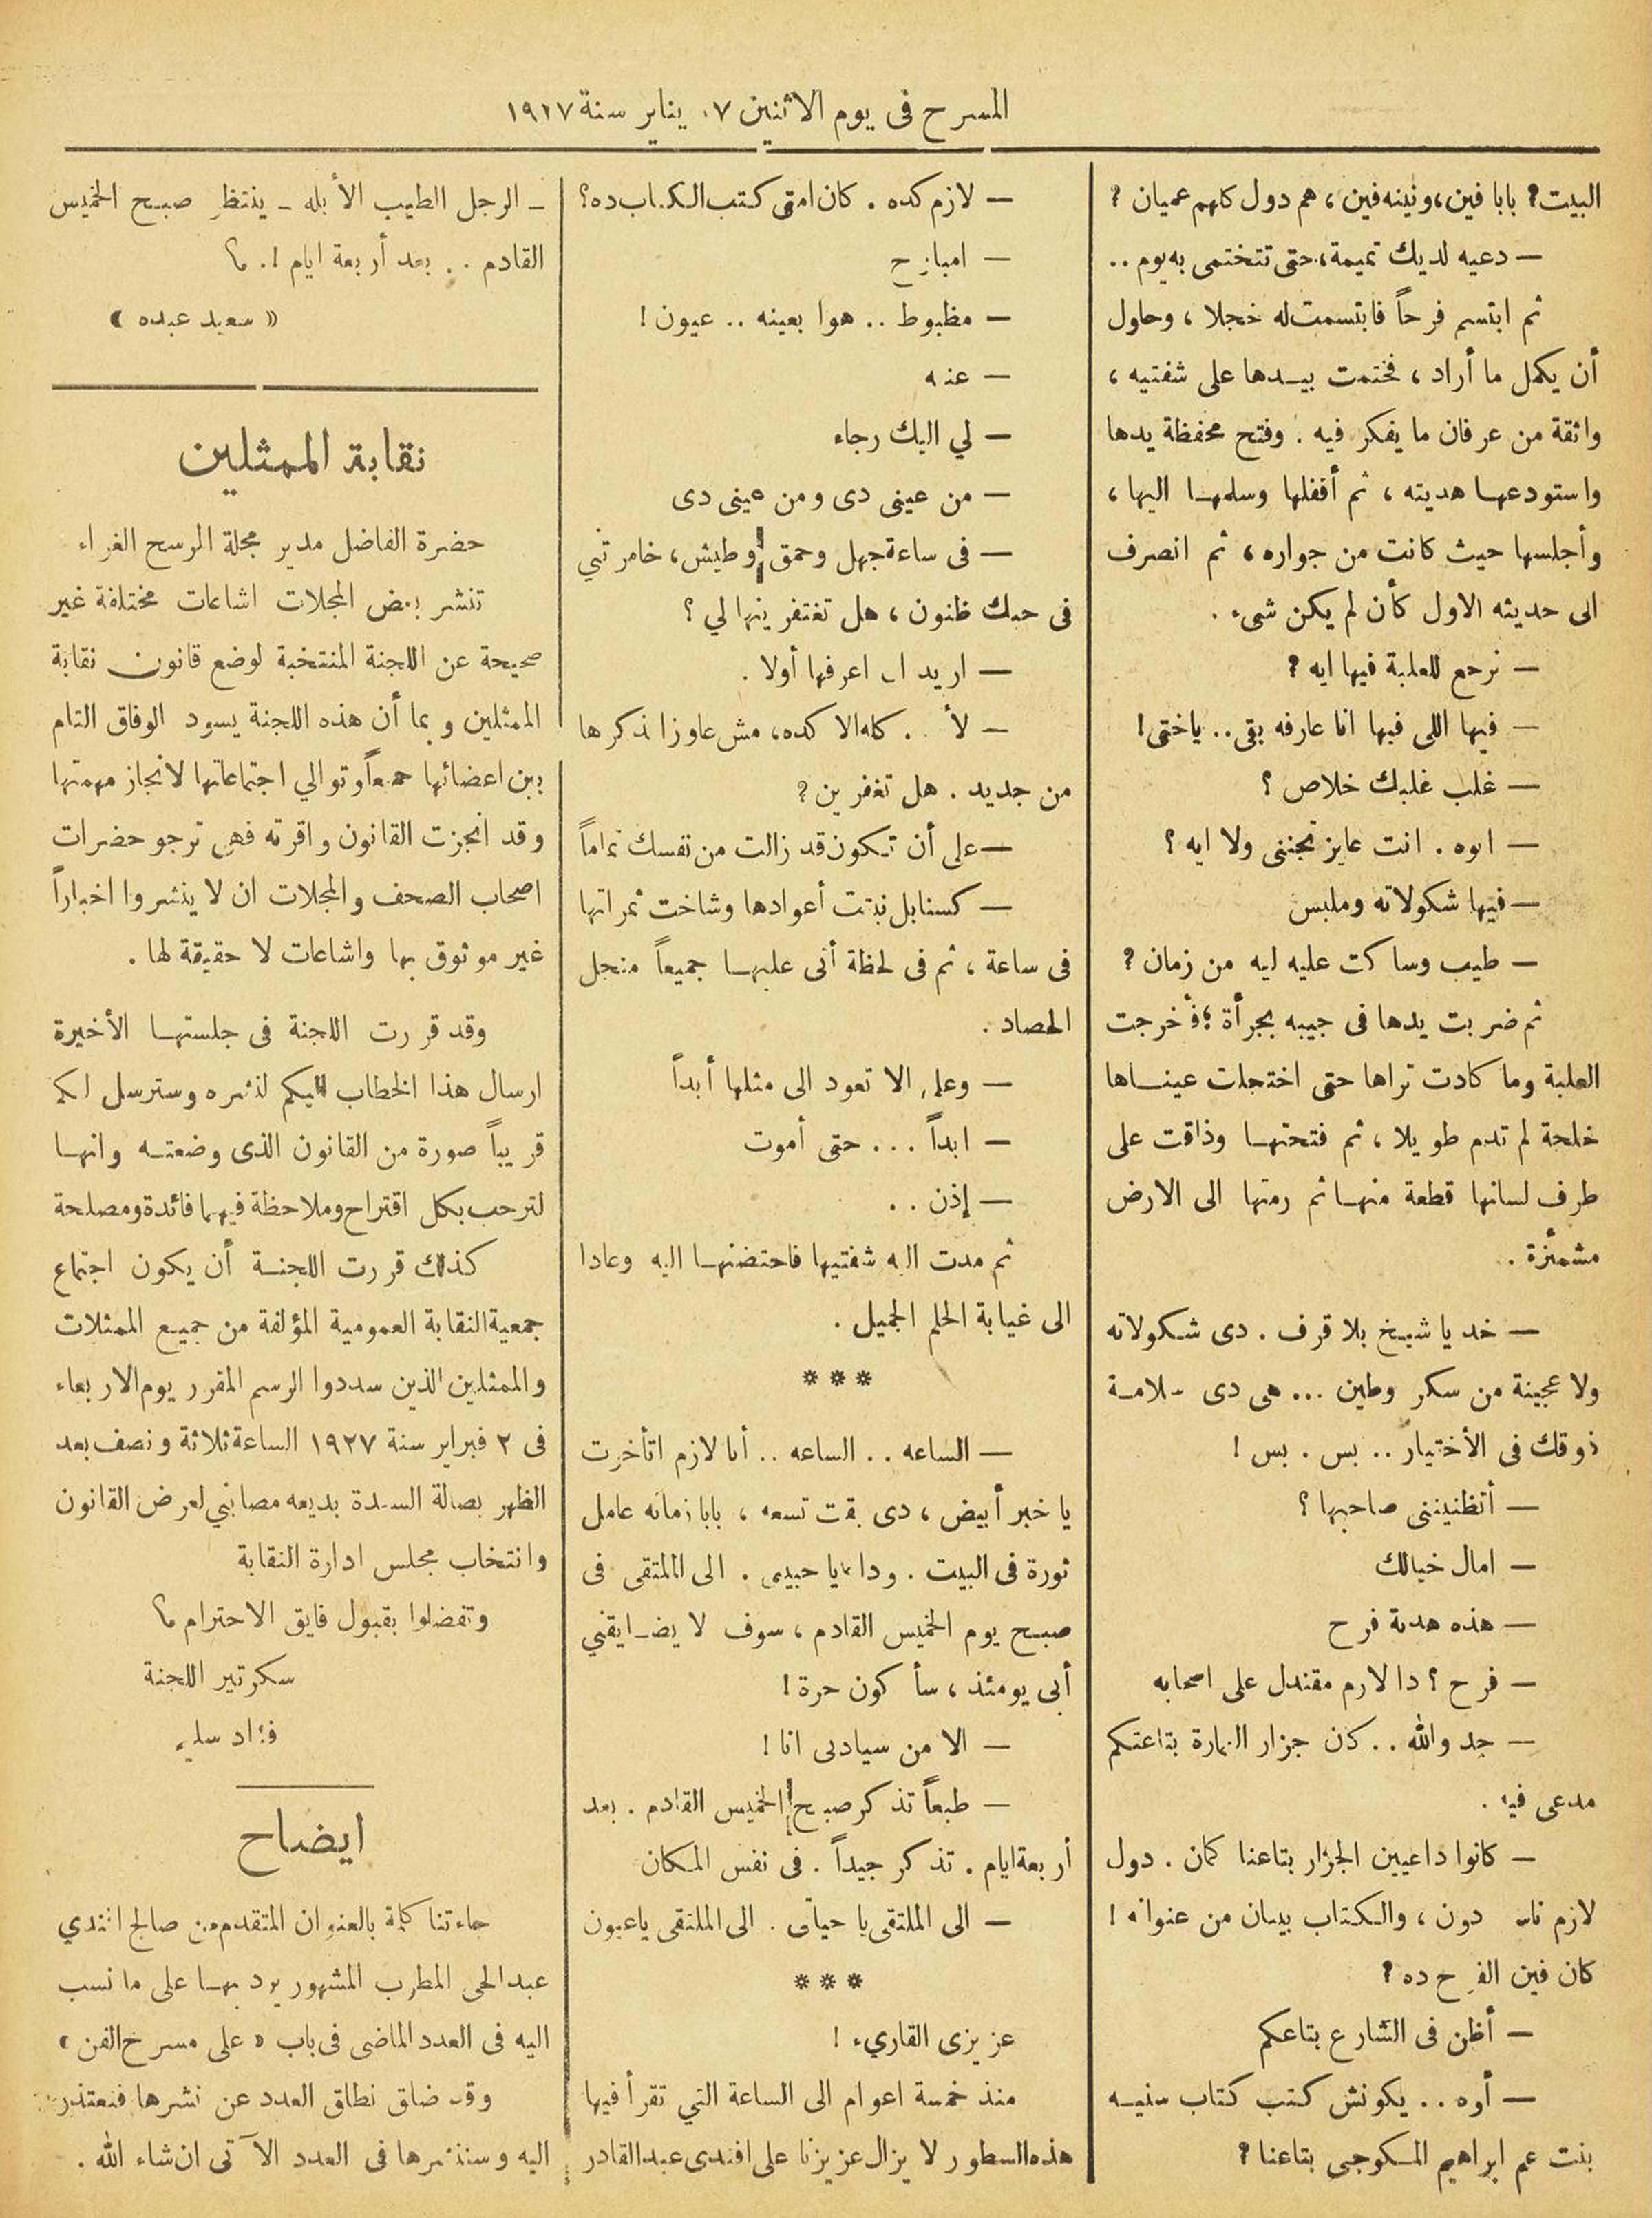 المسرح فى يوم الاثنين ١٧ يناير سنة ١٩٢٧
البيت؟ بابا فين، ونينه فين، هم دول كلهم عميان ؟
— دعيه لديك تميمة، حتى تتختمى به يوم ..
ثم ابتسم فرحاً فابتسمت له خجلا ، وحاول
أن يكمل ما أراد ، فختمت بيـدها على شفتيه ،
واثقة من عرفان ما يفكر فيه . وفتح محفظة يدها
واستودعها هديته ، ثم أقفلها وسلمها اليها ،
وأجلسها حيث كانت من جواره، ثم انصرف
الى حديثه الاول كأن لم يكن شىء .
— نرجع للعلبة فيها ايه ؟
— فيها اللى فيها انا عارفه بقى.. ياختى !
— غلب غلبك خلاص ؟
— ايوه . انت عايز تجننى ولا ايه ؟
— فيها شكولاته وملبس
— طيب وساكت عليه ليه من زمان ؟
ثم ضربت يدها فى جيبه بجرأة ؛ فأخرجت
العلبة وما كادت تراها حتى اختجلت عينـاها
خلجة لم تدم طويلا ، ثم فتحتهـا وذاقت على
طرف لسانها قطعة منهـا ثم رمتها الى الارض
مشمئزة .
— خد يا شيخ بلا قرف . دى شكولاته
ولا عجينة من سكر وطين ... هى دى سلامة
ذوقك فى الأختيار .. بس . بس !
— أتظنيننى صاحبها ؟
— امال خيالك
— هذه هدية فرح
— فرح ؟ دا لازم مقندل على اصحابه
— جد والله .. كان جزار الهارة بتاعتكم
مدعى فيه .
— كانوا داعيين الجزار بتاعنا كمان . دول
لازم ناس دون ، والكتاب بيبان من عنوانه !
كان فين الفرح ده ؟
— أظن فى الشارع بتاعكم
— أوه .. يكونش كتب كتاب سنيـه
بنت عم ابراهيم المكوجى بتاعنا ؟
— لازم كده . كان امتى كتب الكتاب ده؟
— امبارح
— مظبوط .. هوا بعينه .. عيون !
— عنه
— لي اليك رجاء
— من عينى دى ومن عينى دى
— فى ساعة جهل وحمق وطيش، خامرتني
فى حبك ظنون ، هل تغتفرينها لي ؟
— اريد ان اعرفها أولا .
— لأ . . كله الا كده، مش عاوز اذكرها
من جديد . هل تغفرين ؟
— على أن تكون قد زالت من نفسك تماماً
— كسنابل نبتت أعوادها وشاخت ثمراتها
فى ساعة ، ثم فى لحظة أتى عليهـا جميعاً منجل
الحصاد .
— وعلى الا تعود الى مثلها أبداً
— ابداً ... حتى أموت
— إذن ..
ثم مدت اليه شفتيها فاحتضنهـا اليه وعادا
الى غيابة الحلم الجميل .
* * *
— الساعه .. الساعه .. أنا لازم اتأخرت
يا خبر أبيض ، دى بقت تسعه ، بابا زمانه عامل
ثورة فى البيت . وداعا يا حبيبى . الى الملتقى فى
صبح يوم الخميس القادم ، سوف لا يضـايقني
أبى يومئذ ، سأكون حرة !
— الا من سيادتى انا !
— طبعاً تذكر صبح الخميس القادم . بعد
أربعة ايام . تذكر جيداً . فى نفس المكان
— الى الملتقى يا حياتى . الى الملتقى يا عيون
* * *
عزيزى القاريء !
منذ خمسة اعوام الى الساعة التي تقرأ فيها
هذه السطور لا يزال عزيزنا على افندى عبد القادر
ـ الرجل الطيب الأبله ـ ينتظر صبح الخميس
القادم .. بعد أربعة ايام ! . ؟
« سعيد عبده »
نقابة الممثلين
حضرة الفاضل مدير مجلة المرسح الغراء
تنشر بعض المجلات اشاعات مختلفة غير
صحيحة عن اللجنة المنتخبة لوضع قانون نقابة
الممثلين وبما أن هذه اللجنة يسود الوفاق التام
بين اعضائها جميعاً وتوالي اجتماعاتها لانجاز مهمتها
وقد انجزت القانون واقرته فهي ترجو حضرات
اصحاب الصحف والمجلات ان لا ينشروا اخباراً
غير موثوق بها واشاعات لا حقيقة لها .
وقد قررت اللجنة فى جلستهـا الأخيرة
ارسال هذا الخطاب اليكم لنشره وسترسل لكم
قريباً صورة من القانون الذى وضعتـه وانهـا
لترحب بكل اقتراح وملاحظة فيهما فائدة ومصلحة
كذلك قررت اللجنـة أن يكون اجتماع
جمعية النقابة العمومية المؤلفة من جميع الممثلات
والممثلين الذين سددوا الرسم المقرر يوم الاربعاء
فى ٢ فبراير سنة ١٩٢٧ الساعة ثلاثة ونصف بعد
الظهر بصالة السيدة بديعه مصابني لعرض القانون
وانتخاب مجلس ادارة النقابة
وتفضلوا بقبول فايق الاحترام ؟
سكرتير اللجنة
فؤاد سليم
ايضاح
جاءتنا كلمة بالعنوان المتقدم من صالح افندي
عبد الحى المطرب المشهور يرد بهـا على ما نسب
اليه فى العدد الماضى فى باب « على مسرح الفن »
وقد ضاق نطاق العدد عن نشرها فنعتذر
اليه وسننشرها فى العدد الآتى ان شاء الله .